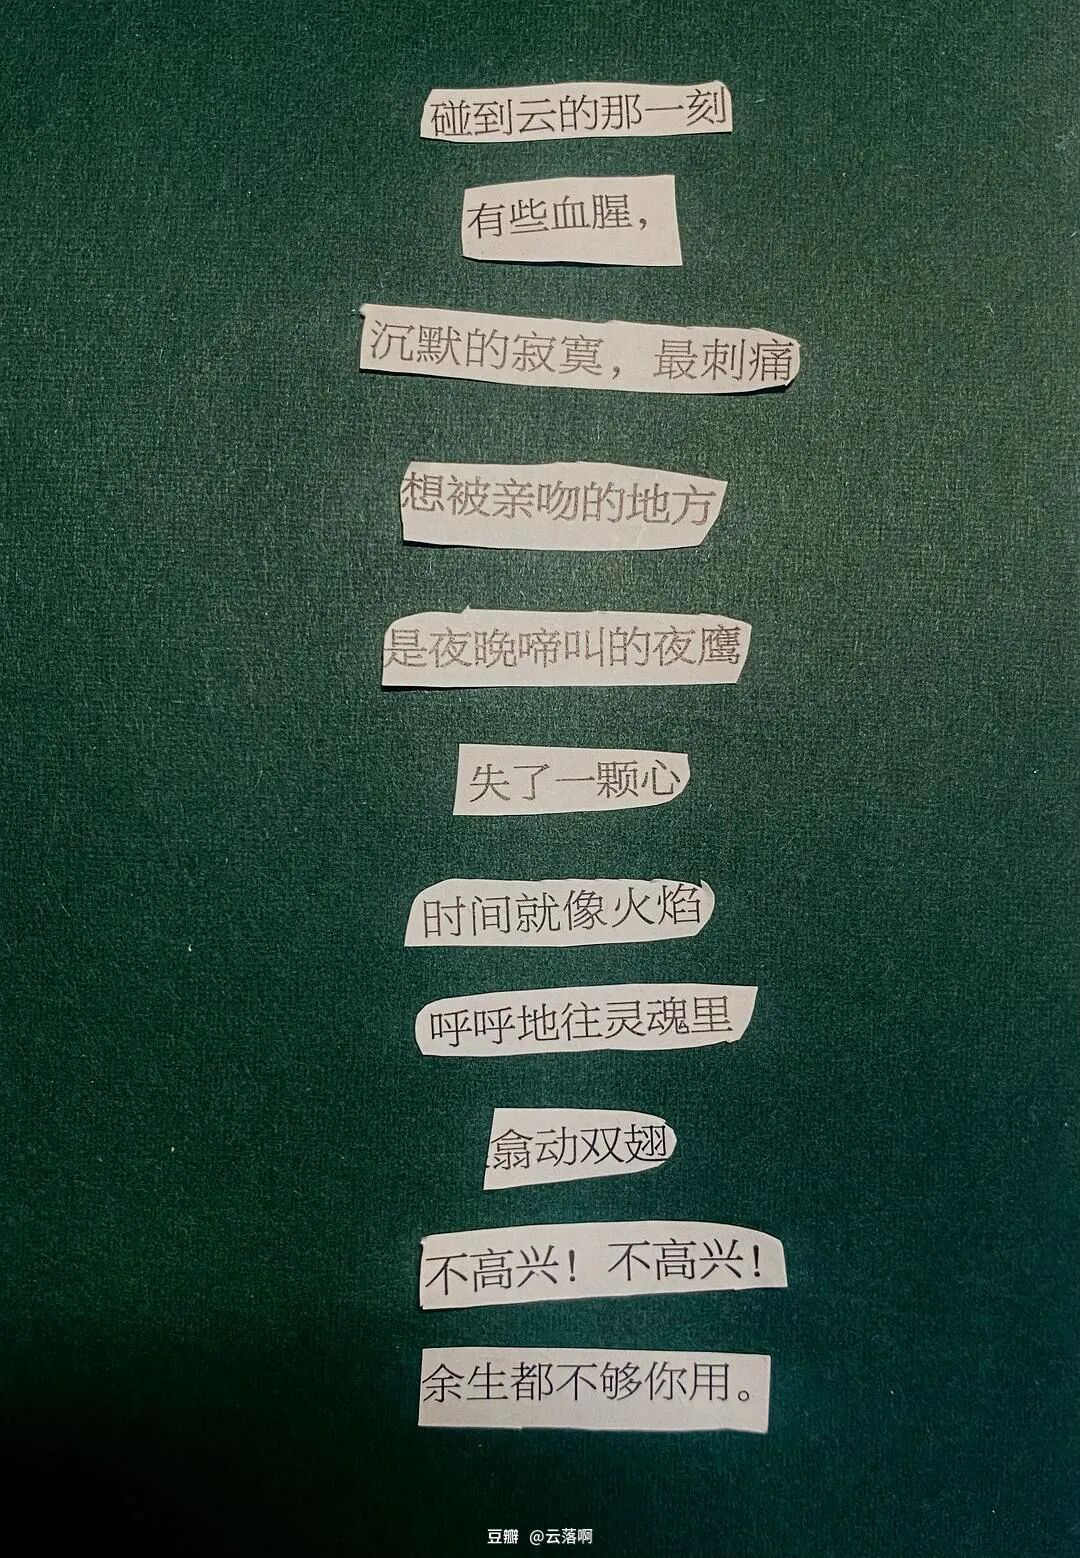 碰到云的那一刻
有些血腥，
沉默的寂寞，最刺痛
想被亲吻的地方
是夜晚啼叫的夜鹰
失了一颗心
时间就像火焰
呼呼地往灵魂里
翕动双翅
不高兴！不高兴！
余生都不够你用。
豆瓣 @云落啊